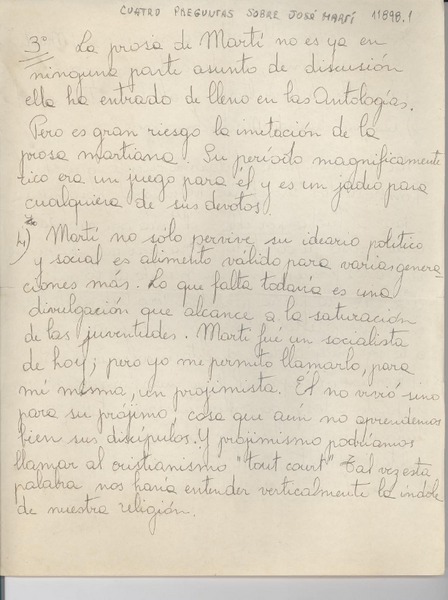 CUATRO PREGUNTAS SOBRE JOSÉ MARTÍ 11898.1
3º La prosa de Martí no es ya en
ninguna parte asunto de discusión
ella ha entrado de lleno en las Antologías.
Pero es gran riesgo la imitación de la
prosa martiana. Su período magníficamente
rico era un juego para él y es un jadeo para
cualquiera de sus devotos.
4) Martí no sólo pervive, su ideario político
y social es alimento válido para varias genera
ciones más. Lo que falta todavía es una
divulgación que alcance a la saturación
de las juventudes. Martí fué un socialista
de hoy; pero yo me permito llamarlo, para
mí misma, un projimista. El no vivió sino
para su prójimo, cosa que aún no aprendemos
bien sus discípulos. Y projimismo podríamos
llamar al cristianismo "tout court" Tal vez esta
palabra nos haría entender verticalmente la índole
de nuestra religión.